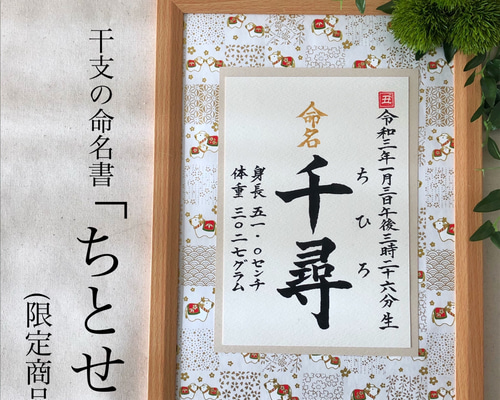 干支の命名書
「ちとせ
(限定商品
丑
令和三年一月三日午後三時二十六分 生
命名
ちひろ
千尋
身長 五一・〇センチ
体重 三〇二七グラム